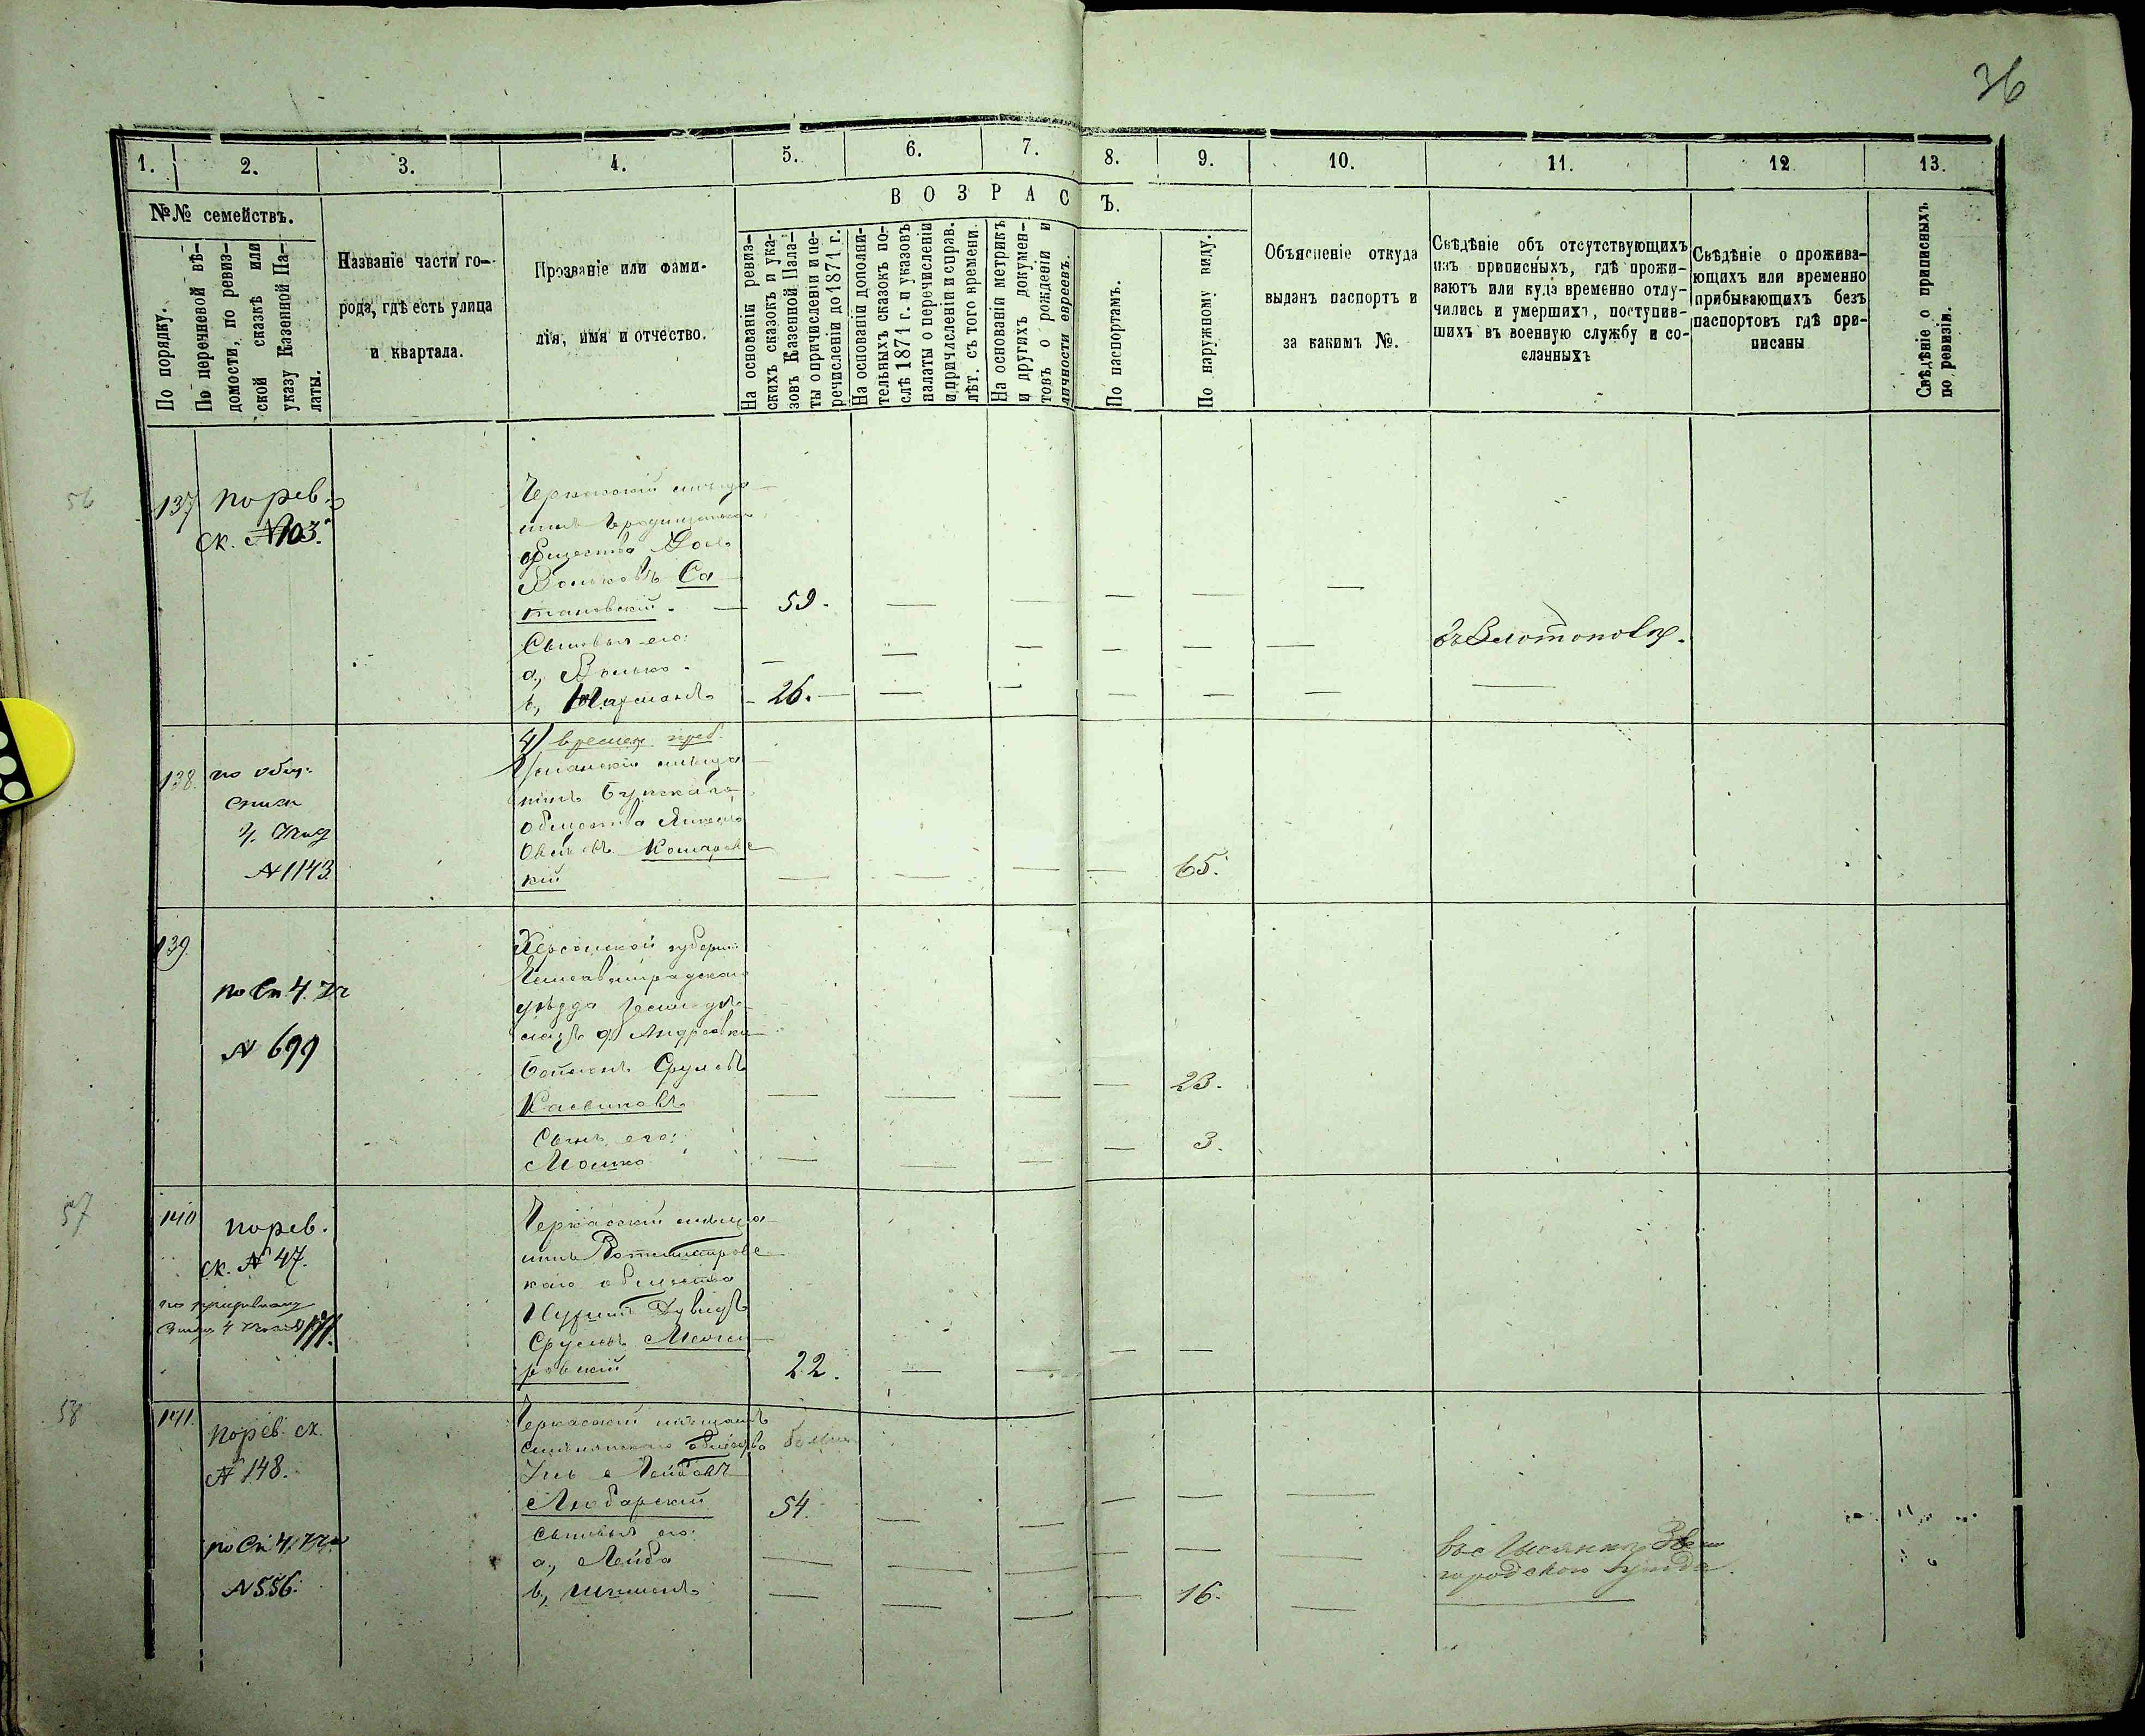 36
1. 2. 3. 4. 5. 6. 7. 8. 9. 10. 11. 12 13.
№№ семействъ.
По порядку.
По перечневой вѣ-
домости, по ревиз-
ской сказкѣ или
указу Казенной Па-
латы.
Названіе части го-
рода, гдѣ есть улица
и квартала.
Прозваніе или фами-
лія, имя и отчество.
ВОЗРАС Ъ.
На основаніи ревиз-
скихъ сказокъ и ука-
зовъ Казенной Пала-
ты о причисленіи и пе-
речисленіи до 1871 г.
На основаніи дополни-
тельныхъ сказокъ по-
слѣ 1871 г. и указовъ
палаты о перечисленіи
и причисленіи и справ.
лѣт. съ того времени.
На основаніи метрикъ
и другихъ докумен-
товъ о рожденіи и
личности евреевъ.
По паспортамъ.
По наружному виду.
Объясненіе откуда
выданъ паспортъ и
за какимъ №.
Свѣдѣніе объ отсутствующихъ
изъ приписныхъ, гдѣ прожи-
ваютъ или куда временно отлу-
чились и умершихъ, поступив-
шихъ въ военную службу и со-
сланныхъ
Свѣдѣніе о прожива-
ющихъ или временно
прибывающихъ безъ
паспортовъ гдѣ при-
писаны
Свѣдѣніе о приписныхъ
по ревизіи.
56
137
по рев.
ск. №103.
Черкасскій мѣща-
нинъ Городищенска
общества
Вольковъ Са-
тановскій. — 59.
Сыновья его:
а, Волько.
въ Золотоношѣ.
в, — 26. —
138.
по общ.
списк
ч.
№1143.
4/ времен. преб.
Уманскій мѣща-
нинъ Букскаго
общества
Кошаровс
кій
65.
139.
по Сп 4. Кв
№ 699
Херсонской губерніи
Елисаветградскаго
уѣзда
Андреевки
Срулевъ
23.
Сынъ его:
Мошко
3.
57
140
по рев.
ск. № 47.
Черкасскій мѣща-
нинъ Ротмистровс
каго общества
Нухимъ Дувидъ
Срулевъ
ровскій
22.
58
141.
по рев. ск.
№ 148.
по Сп 4. Кв
№ 556.
Черкасскій мѣщанинъ
Смѣлянскаго общества
Лейбовъ
Любарскій
54.
сыновья его:
а, Лейба
в, Шимонъ
16.
въ с Лысянкѣ Звени
городскаго уѣзда.